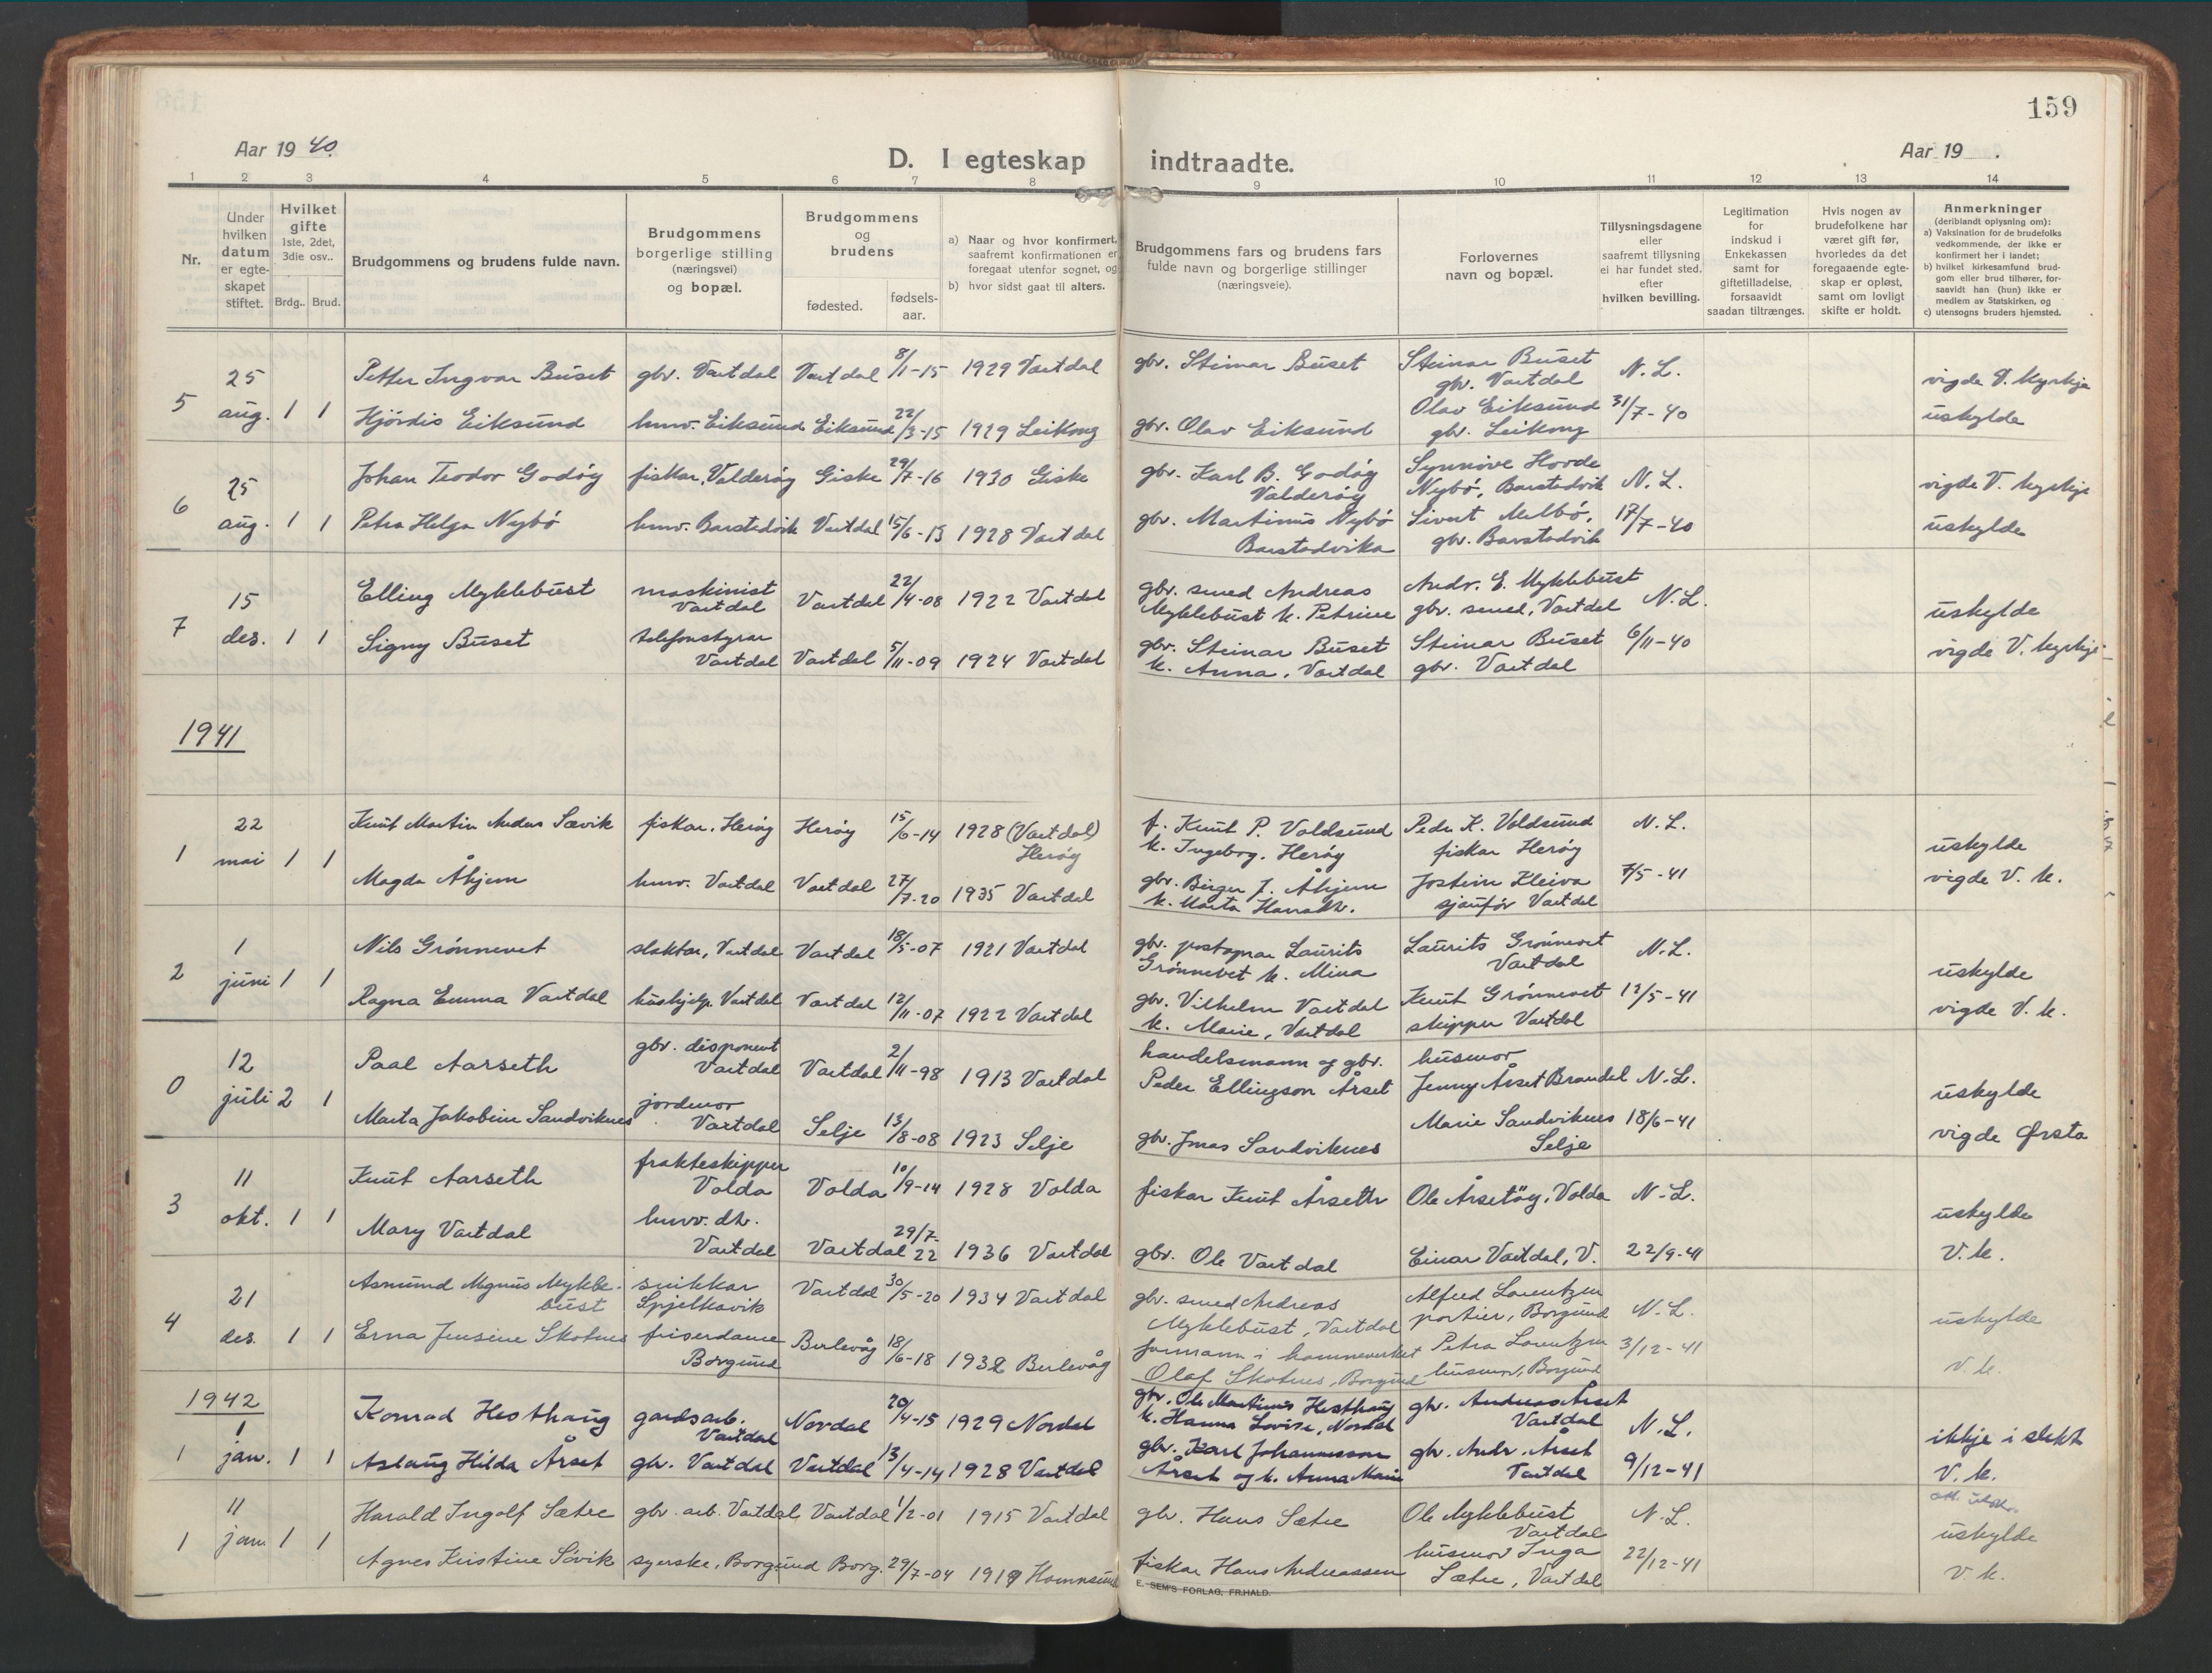 159
Aar 19 40.
D. I egteskap indtraadte.
Aar 19 .
1 2 3 4 5 6 7 8 9 10 11 12 13 14
Nr.
Under hvilken datum er egteskapet stiftet.
Hvilket gifte 1ste, 2det, 3die osv..
Brdg.. Brud.
Brudgommens og brudens fulde navn.
Brudgommens borgerlige stilling (næringsvei) og bopæl.
Brudgommens og brudens
fødested. fødsels-aar.
a) Naar og hvor konfirmert, saafremt konfirmationen er foregaat utenfor sognet, og
b) hvor sidst gaat til alters.
Brudgommens fars og brudens fars fulde navn og borgerlige stillinger (næringsveie).
Forlovernes navn og bopæl.
Tillysningsdagene eller saafremt tillysning ei har fundet sted, efter hvilken bevilling.
Legitimation for indskud i Enkekassen samt for giftetilladelse, forsaavidt saadan tiltrænges.
Hvis nogen av brudefolkene har været gift før, hvorledes da det foregaaende egteskap er opløst, samt om lovligt skifte er holdt.
Anmerkninger
(deriblandt oplysning om):
a) Vaksination for de brudefolks vedkommende, der ikke er konfirmert her i landet;
b) hvilket kirkesamfund brudgom eller brud tilhører, forsaavidt han (hun) ikke er medlem av Statskirken, og
c) utensogns bruders hjemsted.
5 25 aug. 1 1
Petter Ingvar Buset gbr. Vartdal Vartdal 8/1-15 1929 Vartdal gbr. Steinar Buset Steinar Buset gbr. Vartdal N.L. vigde V. kyrkje
Hjördis Eiksund husv. Eiksund Eiksund 22/3-15 1929 Leikong gbr. Olav Eiksund Olav Eiksund gbr. Leikong 31/7-40 uskylde
6 25 aug. 1 1
Johan Teodor Godöy fiskar, Valderöy Giske 29/7-16 1930 Giske gbr. Karl B. Godöy Valderöy Synnöve Hovde Nybö, Barstadvik N.L. vigde V. kyrkje
Petra Helga Nybö husv. Barstadvik Vartdal 15/6-13 1928 Vartdal gbr. Martinus Nybö Barstadvika Sivert Melbö, gbr. Barstadvik 17/7-40 uskylde
7 15 des. 1 1
Elling Myklebust maskinist Vartdal Vartdal 22/4-08 1922 Vartdal gbr. smed Andreas Myklebust k. Petrine Andr. E. Myklebust gbr. smed, Vartdal N.L. uskylde
Signy Buset telefonstyrar Vartdal Vartdal 5/11-09 1924 Vartdal gbr. Steinar Buset k. Anna, Vartdal Steinar Buset gbr. Vartdal 6/11-40 vigde V. kyrkje
1941
1 22 mai 1 1
Knut Martin Andus Sævik fiskar, Heröy Heröy 15/6-14 1928 (Vartdal) Heröy f. Knut P. Voldsund k. Ingebog, Heröy Peder K. Voldsund fiskar Heröy N.L. uskylde
Magda Åhjem husv. Vartdal Vartdal 27/7-20 1935 Vartdal gbr. Birger J. Åhjem k. Marta Jostein Kleiva sjauför Vartdal 7/5-41 vigde V. k.
2 1 juni 1 1
Nils Grönnevet slaktar, Vartdal Vartdal 18/5-07 1921 Vartdal gbr. postopnar Laurits Grönnevet k. Mina Laurits Grönnevet Vartdal N.L. uskylde
Ragna Emma Vartdal hushjelp. Vartdal Vartdal 12/11-07 1922 Vartdal gbr. Vilhelm Vartdal k. Marie, Vartdal Knut Grönnevet skipper Vartdal 12/5-41 vigde V. k.
0 12 juli 2 1
Paal Aarseth gbr. disponent Vartdal Vartdal 2/11-98 1913 Vartdal handelsmann og gbr. Peder Ellingson Årset husmor Jenny Årset Brandal N.L. uskylde
Marta Jakobine Sandviknes jordmor Vartdal Selje 13/8-08 1923 Selje gbr. Jonas Sandviknes Marie Sandviknes Selje 18/6-41 vigde Ørsta
3 11 okt. 1 1
Knut Aarseth frakteskipper Volda Volda 10/9-14 1928 Volda fiskar Knut Årseth Ole Årsetöy, Volda N.L. uskylde
Mary Vartdal husv. dtr. Vartdal Vartdal 29/7-22 1936 Vartdal gbr. Ole Vartdal Einar Vartdal, V. 22/9-41 V. k.
4 21 des. 1 1
Asmund Magnus Myklebust snikkar Spjelkavik Vartdal 30/5-20 1934 Vartdal gbr. smed Andreas Myklebust, Vartdal Alfred Lorentzen portier, Borgund N.L. uskylde
Erna Jensine Skotnes friserdame Borgund Berlevåg 18/6-18 1932 Berlevåg formann i hamneverket Olaf Skotnes, Borgund Petra Lorentzen husmor, Borgund 3/12-41 V. k.
1942
1 1 jan. 1 1
Konrad Hesthaug gardsarb. Vartdal Nordal 20/4-15 1929 Nordal gbr. Ole Martinus Hesthaug k. Hanna Lovise, Nordal gbr. Andreas Årset Vartdal N.L. ikkje i slekt
Aslaug Hilda Årset gbr. Vartdal Vartdal 13/4-14 1928 Vartdal gbr. Karl Johannesson Årset og k. Anna Marie gbr. Andr. Årset Vartdal 9/12-41 V. k.
1 11 jan 1 1
Harald Ingolf Sætre gbr. arb. Vartdal Vartdal 1/2-01 1915 Vartdal gbr. Hans Sætre Ole Myklebust Vartdal N.L. uskylde
Agnes Kristine Sövik syerske, Borgund Borg. 29/7-04 1919 Hamnsund fiskar Hans Andreassen husmor Inga Sætre, Vartdal 22/12-41 V. k.
E. SEM'S FORLAG, FR.HALD.